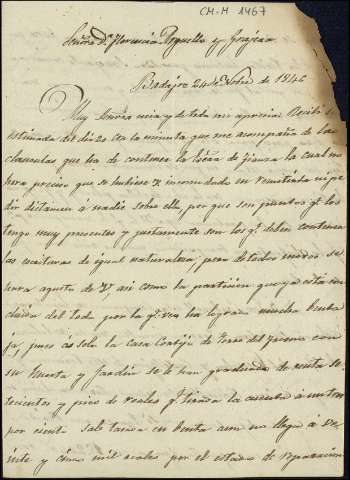 CM-M 1467
Señora Dª Florencia y
Badajoz 24 de Nobre de 1846
Muy Señora mia y de todo mi aprecio: Recibí su
estimada del dia 20 con la minuta que me acompaña de las
clausulas que ha de contener la Escra de fianza la cual no
hera preciso que se hubiese V. incomodado en remitirla ni pe
dir dictamen á nadie sobre ella, por que son puntos qe los
tengo muy presentes y justamente son los qe deben contener
las escrituras de igual naturaleza, pero de todos modos se
hara agusto de V. asi como la particion que ya está con
cluida del todo por la qe ves ha logrado mucha benta
ja, pues la sola la casa de con
su huerta y Jardin se le han graduado de renta se
tecientos y pico de reales qe tirada la cuenta á un tres
por ciento sale tasada en benta aun no llega á ve
inte y cinco mil reales por el estado de reparacion